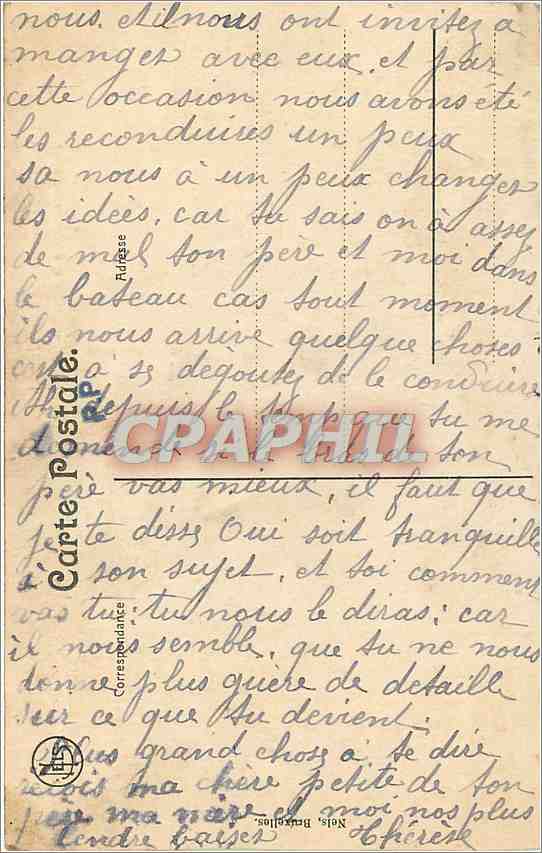 nous. et ilnous ont invitez a
manger avec eux, et par
cette occasion nous avons été
les reconduires un peux
sa nous à un peux changer
les idées, car tu sais on à assez
de mal ton père et moi dans
le bateau cas tout moment
ils nous arrive quelque choses :
à se dégoutez de le conduire
depuis le temps que tu me
demende si le bras de ton
père vas mieux, il faut que
je te disse Oui soit tranquille
a son sujet, et toi comment
vas tu : tu nous le diras ; car
il nous semble, que tu ne nous
donne plus guère de detaille
sur ce que tu devient.
Plus grand chose a te dire
reçois ma chère petite de ton
père ma mère et moi nos plus
tendre baiser Thérèse
Carte Postale.
R.P
Adresse
Correspondance
NELS
Nels, Bruxelles.
CPAPHIL